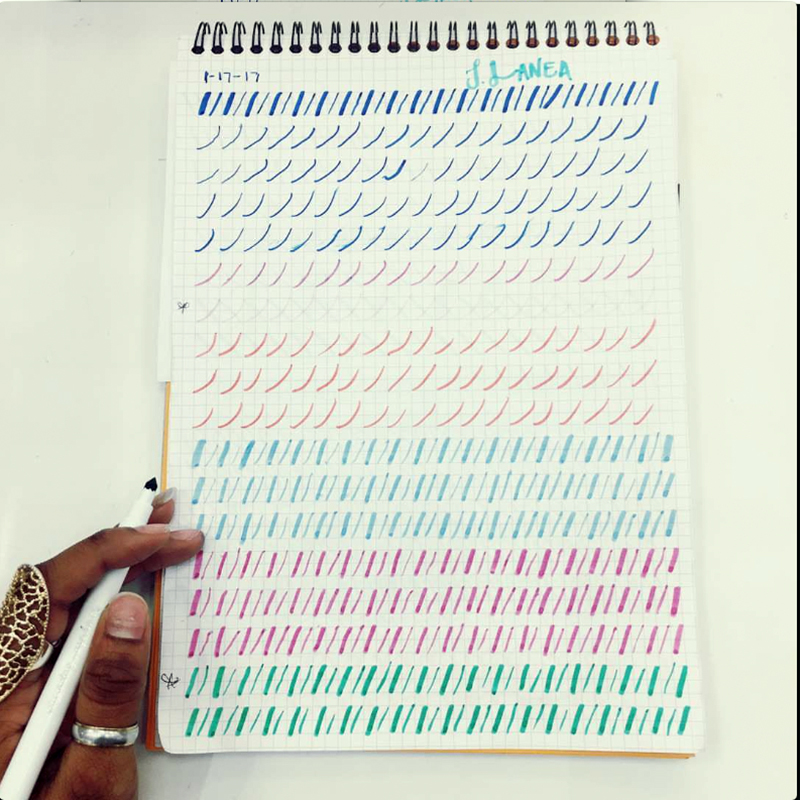 1-17-17
J. LANEA